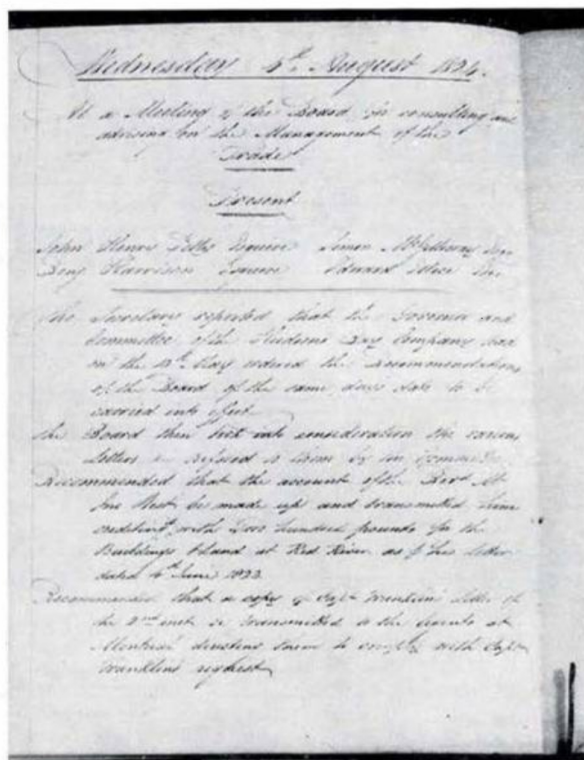 Wednesday 4th August 1824.
At a Meeting of the Board for consulting and
advising on the Management of the
Trade
Present
John Henry Pelly Esquire Simon McGillivray Esqr
Benj Harrison Esquire Edward Ellice Esqr
The Secretary reported that the Governor and
Committee of the Hudsons Bay Company had
on the 12th May ordered the Recommendations
of the Board of the same days date to be
carried into effect.
The Board then took into consideration the various
letters &c referred to them by the Committee
Recommended that the account of the Revd Mr
Jno West be made up and transmitted him
crediting with two hundred pounds for the
Buildings &c and at Red River as p his letter
dated 4th June 1823
Recommended that a copy of Capt Franklins letter of
the 2nd inst be transmitted to the Agents at
Montreal directing them to comply with Capt
Franklins request